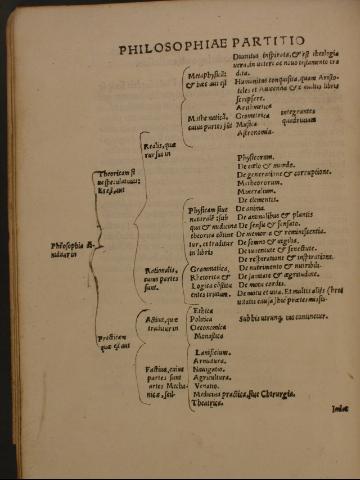 PHILOSOPHIAE PARTITIO
Diuinitus inspirata, & est theologia
uera, in ueteri ac nouo testamento tra
dita.
Metaphysicã:
& haec aut est
Humanitus conquisita, quam Aristo-
teles et Auicenna & e multis libris
scripsere.
Mathematicã,
cuius partes sũt
Arithmetica
Geometria
Musica
Astronomia.
integrantes
quadruuium
Realis, quae
rursus in
Physicorum.
De coelo & mundo.
De generatione & corruptione.
Metheororum.
Mineralium.
De elementis.
Theoricam si
ue speculatiuam:
Et est, aut
Physicam siue
naturalẽ: sub
qua & medicina
theorica cõtine
tur, et traditur
in libris
De anima.
De animalibus & plantis
De sensu & sensato.
De memoria & reminiscentia.
De somno & uigilia.
De iuuentute & senectute.
De respiratione & inspiratione.
De nutrimento & nutribili.
De sanitate & aegritudine.
De motu cordis.
De morte et uita. Et multis alijs
Philosophia di-
uiditur in
Rationalis,
cuius partes
sunt.
Grammatica,
Rhetorica &
Logica
Practicam
quae est aut
Actiua, quae
traditur in
Ethica
Politica
Oeconomica
Monastica
Sub his utrunq; ius continetur.
Factiua, cuius
partes sunt
artes Mecha-
nicae, scil.
Lanificium.
Armatura.
Nauigatio.
Agricultura.
Venatio.
Medicina practica, siue Chirurgia.
Theatrica.
Index